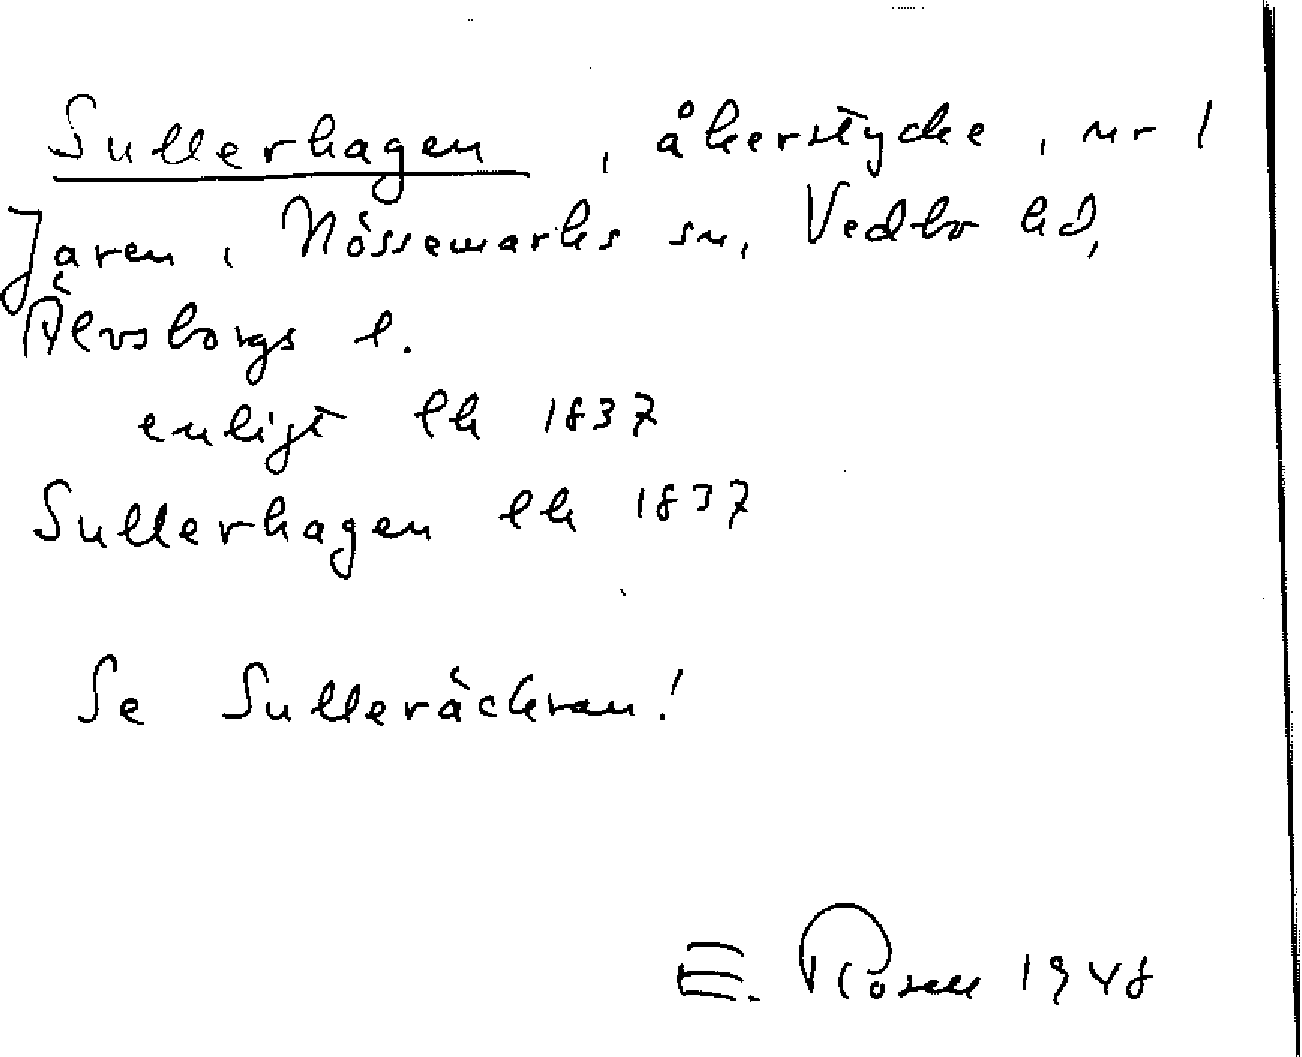 Sullerhagen, åkerstycke, nr 1
Jaren, Nössemarks sn, Vedbo hd,
Älvsborgs l.
enligt lh 1837
Sullerhagen lh 1837
Se Sulleräckran!
E. Rosen 1948